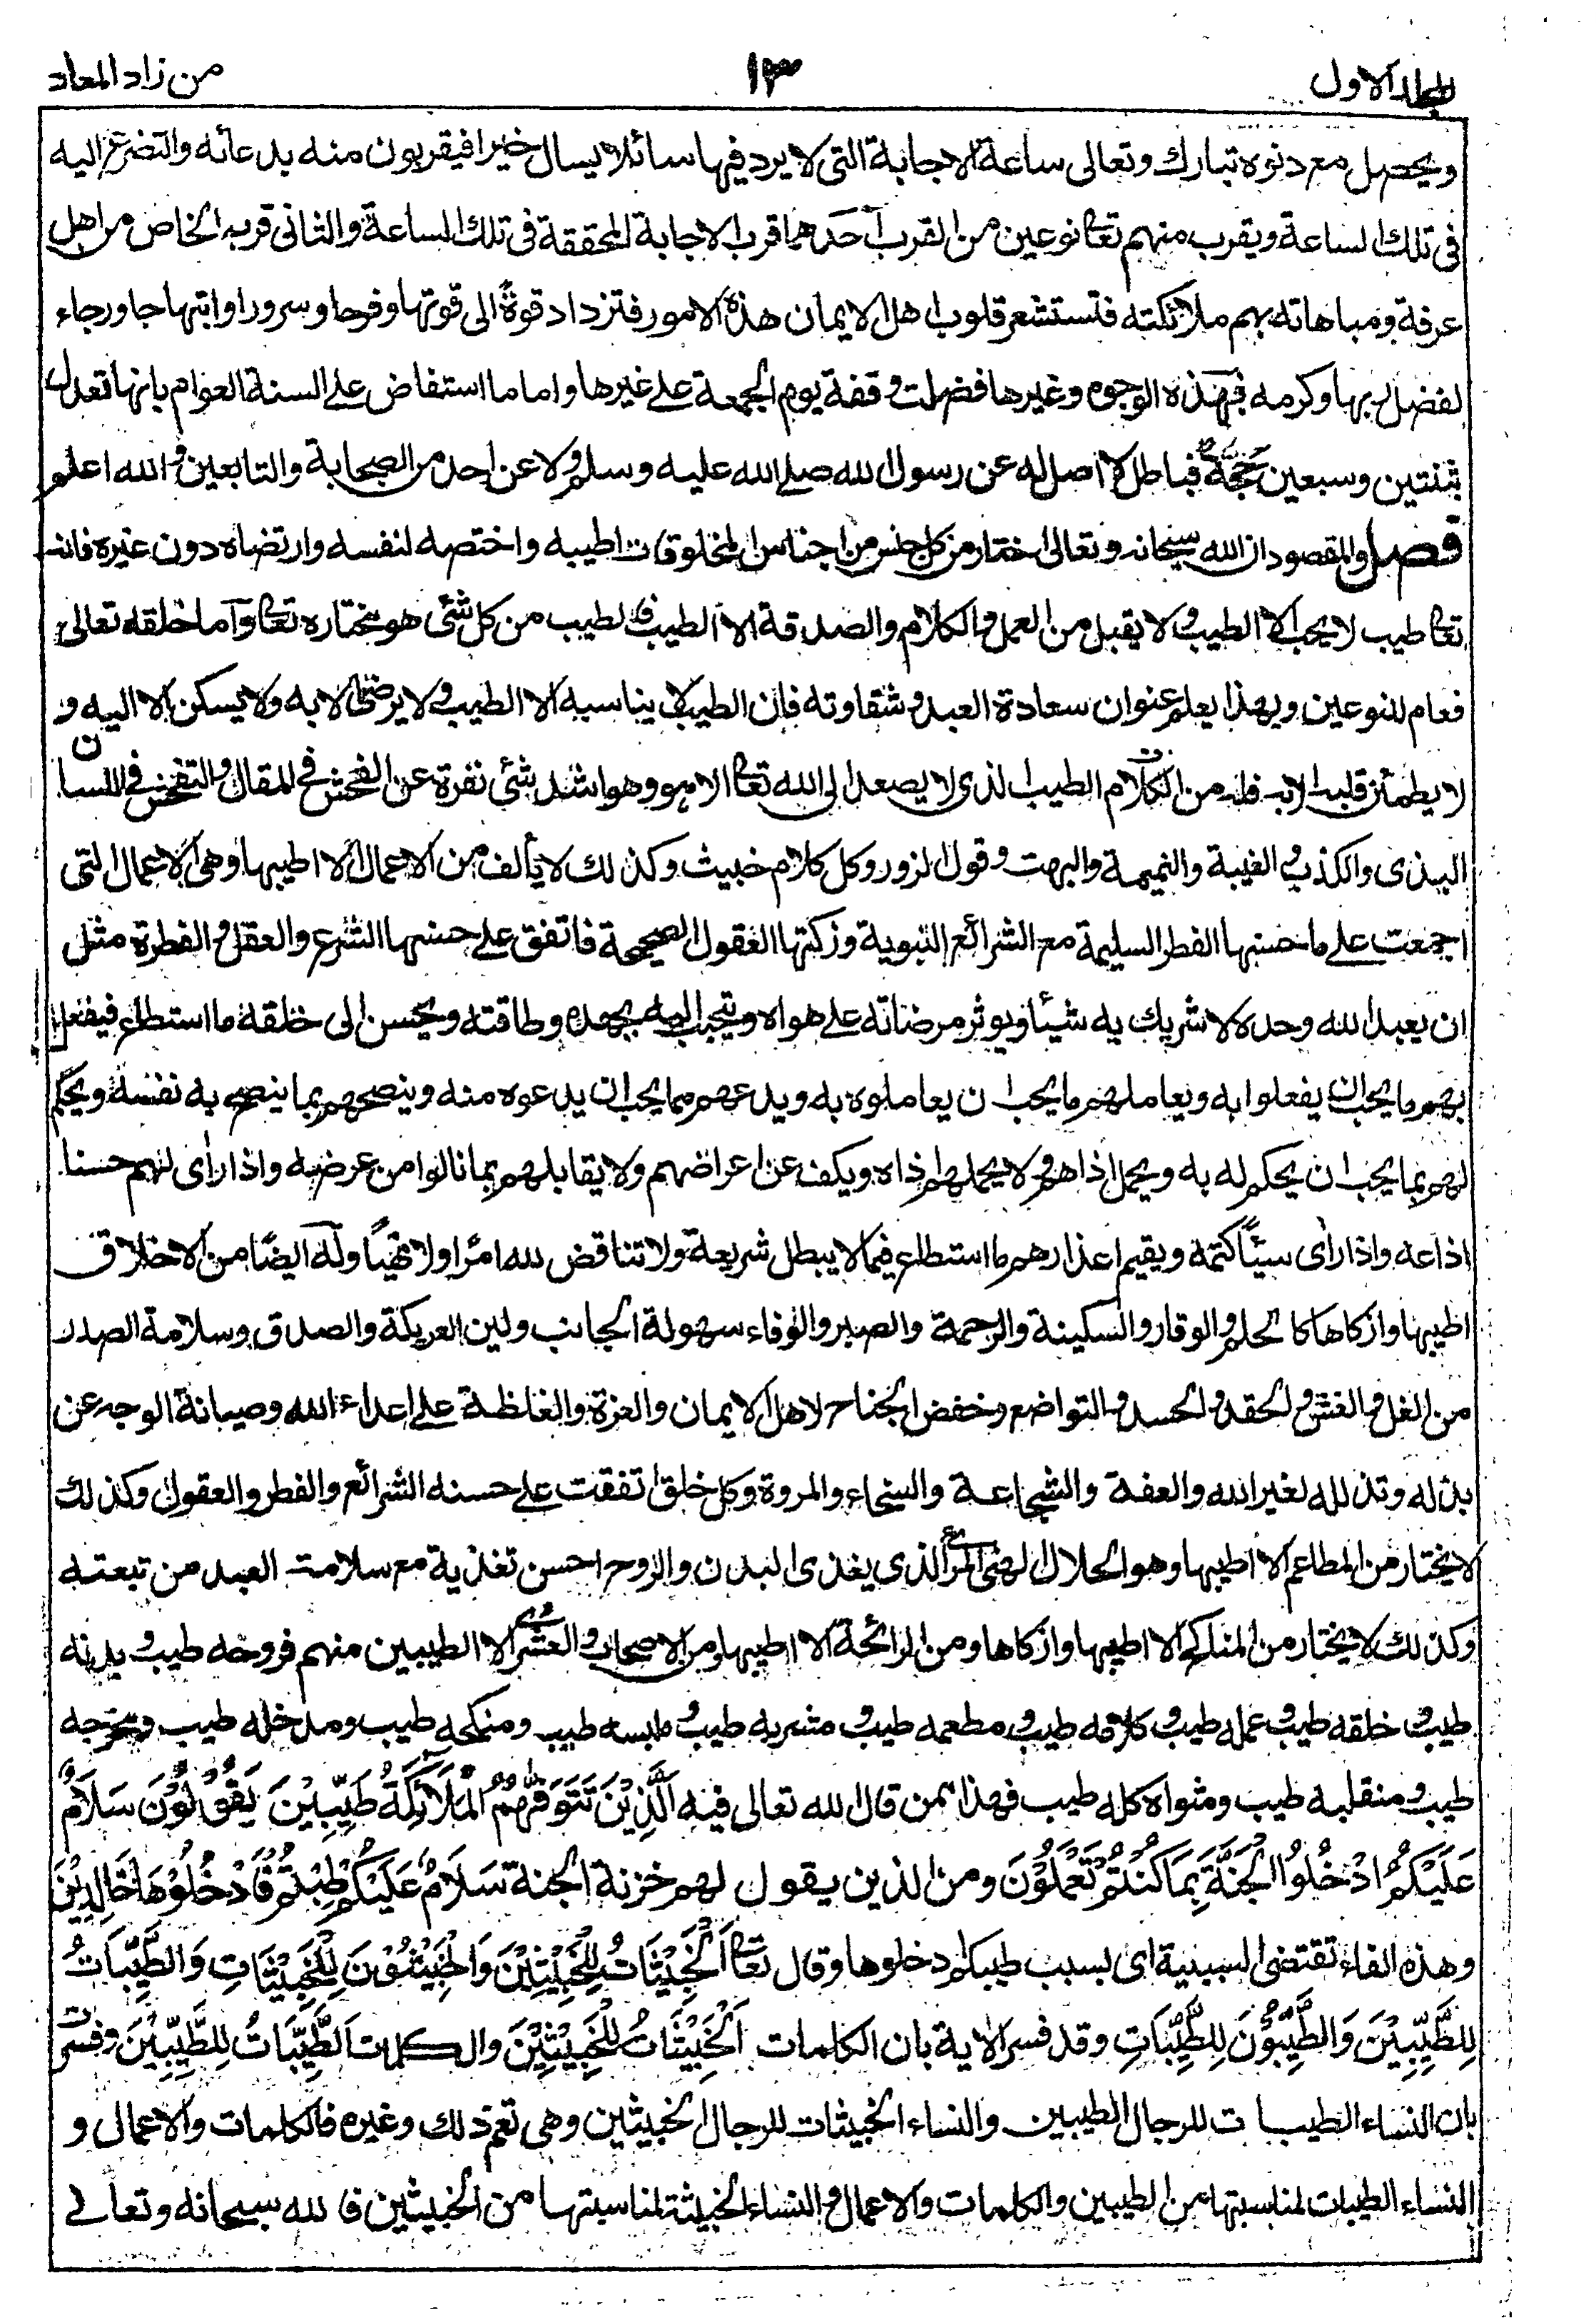 المجلد الاول ١٣ من زاد المعاد
ويحصل مع دنوه تبارك وتعالى ساعة الاجابة التى لا يرد فيها سائلا يسال خيرا فيقربون منه بدعائه والتضرع اليه
فى تلك الساعة ويقرب منهم تعا نوعين من القرب آحدهما قرب الاجابة المحققة فى تلك الساعة والثانى قربه الخاص من اهل
عرفة ومباهاته بهم ملائكته فتستشعر قلوب اهل الايمان هذه الامور فتزداد قوةً الى قوتها وفرحا وسرورا وابتهاجا ورجاء
لفضل ربها وكرمه فبهذه الوجوه وغيرها فضلت وقفة يوم الجمعة على غيرها واما ما استفاض على السنة العوام بانها تعدل
ثنتين وسبعين حَجَّةً فباطل لا اصل له عن رسول الله صلى الله عليه وسلم ولا عن احد من الصحابة والتابعين والله اعلم
فصل والمقصود ان الله سبحانه وتعالى اختار من كل جنس من اجناس المخلوقات اطيبه واختصه لنفسه وارتضاه دون غيره فانه
تعا طيب لا يحب الا الطيب ولا يقبل من العمل والكلام والصدقة الا الطيب فالطيب من كل شئى هو مختاره تعا وآما خلقه تعالى
فعام للنوعين وبهذا يعلم عنوان سعادة العبد وشقاوته فان الطيب لا يناسبه الا الطيب ولا يرضى الا به ولا يسكن الا اليه و
لا يطمئن قلبه الا به فله من الكلام الطيب الذى لا يصعد الى الله تعا الا هو وهو اشد شئى نفرة عن الفحش فى المقال والتفحش فى اللسان
البذى والكذب والغيبة والنميمة والبهت وقول الزور وكل كلام خبيث وكذلك لا يألف من الاعمال الا اطيبها وهى الاعمال التى
اجمعت على ما حسنها الفطر السليمة مع الشرائع النبوية وزكتها العقول الصحيحة فاتفق على حسنها الشرع والعقل والفطرة مثل
ان يعبد الله وحده لا شريك به شيئا ويوثر مرضاته على هواه ويتحبب اليه بجهده وطاقته ويحسن الى خلقه ما استطاع فيفعل
بهم ما يحب ان يفعلوا به ويعاملهم ما يحب ان يعاملوه به ويدعهم مما يحب ان يدعوه منه وينصحهم بما ينصح به نفسه ويحكم
لهم بما يحب ان يحكم له به ويحمل اذاهم ولا يحملهم اذاه ويكف عن اعراضهم ولا يقابلهم بما نالوا من عرضه واذا راى لهم حسنا
اذاعه واذا راى سيئًا كتمه ويقيم اعذارهم ما استطاع فيما لا يبطل شريعة ولا تناقض لله امرًا ولا نهيًا وله ايضًا من الاخلاق
اطيبها وازكاها كالحلم والوقار والسكينة والرحمة والصبر والوفاء سهولة الجانب ولين العريكة والصدق وسلامة الصدر
من الغل والغش والحقد والحسد والتواضع وخفض الجناح لاهل الايمان والعزة والغلظة على اعداء الله وصيانة الوجه عن
بذله وتذلله لغير الله والعفة والشجاعة والسخاء والمروة وكل خلق اتفقت على حسنه الشرائع والفطر والعقول وكذلك
لا يختار من المطاعم الا اطيبها وهو الحلال الهنى المرئ الذى يغذى البدن والروح احسن تغذية مع سلامة العبد من تبعته
وكذلك لا يختار من المناكح الا اطيبها وازكاها ومن الرائحة الا اطيبها ومن الاصحاب والعشراء الا الطيبين منهم فروحه طيب وبدنه
طيب وخلقه طيب وعمله طيب وكلامه طيب ومطعمه طيب ومشربه طيب وملبسه طيب ومنكحه طيب ومدخله طيب ومخرجه
طيب ومنقلبه طيب ومثواه كله طيب فهذا ممن قال الله تعالى فيه اَلَّذِيْنَ تَتَوَفّٰهُمُ الْمَلَائِكَةُ طَيِّبِيْنَ يَقُوْلُوْنَ سَلَامٌ
عَلَيْكُمْ ادْخُلُوا الْجَنَّةَ بِمَا كُنْتُمْ تَعْمَلُوْنَ ومن الذين يقول لهم خزنة الجنة سَلَامٌ عَلَيْكُمْ طِبْتُمْ فَادْخُلُوْهَا خَالِدِيْنَ
وهذه الفاء تقتضى السببية اى بسبب طيبكم ادخلوها وقال تعا اَلْخَبِيْثَاتُ لِلْخَبِيْثِيْنَ وَالْخَبِيْثُوْنَ لِلْخَبِيْثَاتِ وَالطَّيِّبَاتُ
لِلطَّيِّبِيْنَ وَالطَّيِّبُوْنَ لِلطَّيِّبَاتِ وقد فسر الاية بان الكلمات اَلْخَبِيْثَاتُ لِلْخَبِيْثِيْنَ والكلمات اَلطَّيِّبَاتُ لِلطَّيِّبِيْنَ وفسرت
بان النساء الطيبات للرجال الطيبين والنساء الخبيثات للرجال الخبيثين وهى تعم ذلك وغيره فالكلمات والاعمال و
النساء الطيبات لمناسبتها من الطيبين والكلمات والاعمال والنساء الخبيثة لمناسبتها من الخبيثين فالله سبحانه وتعالى